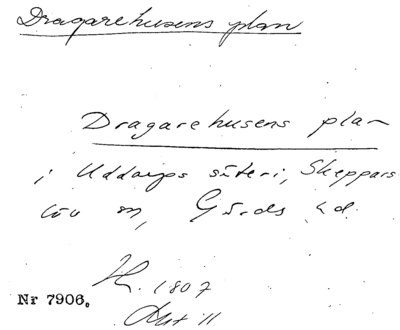 Dragarehusens plan
Dragarehusens plan
i Uddarps säteri, Skeppars
löv sn, Gärds hd.
H. 1807
Akt 11
Nr 7906.